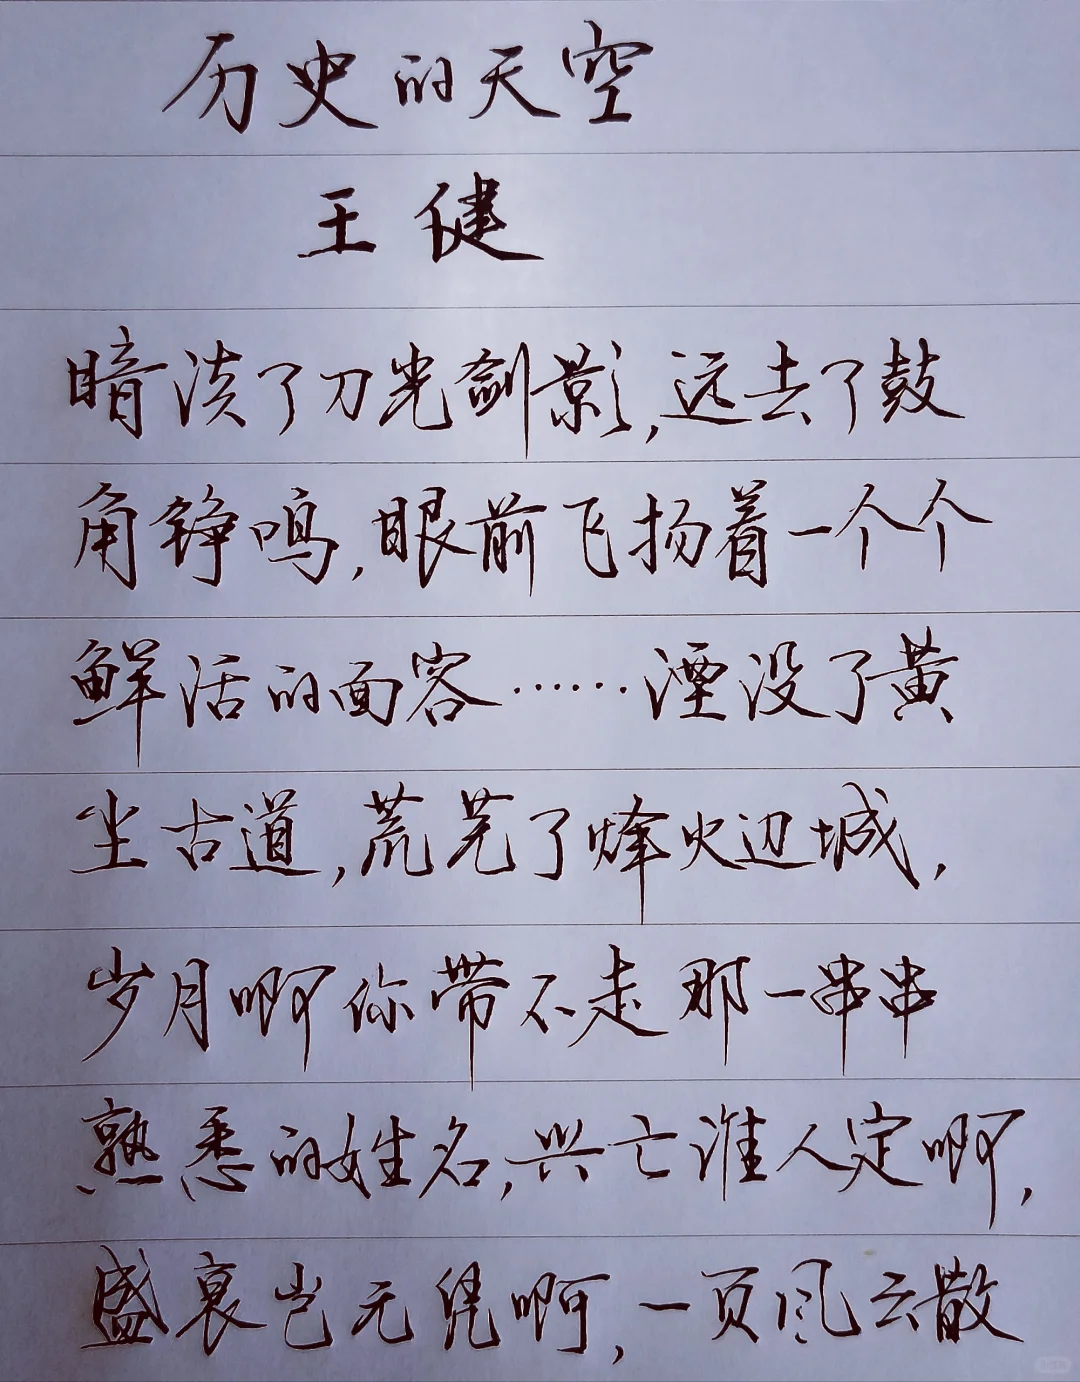 历史的天空
王健
暗淡了刀光剑影,远去了鼓
角铮鸣,眼前飞扬着一个个
鲜活的面容……湮没了黄
尘古道,荒芜了烽火边城,
岁月啊你带不走那一串串
熟悉的姓名,兴亡谁人定啊,
盛衰岂无凭啊,一页风云散